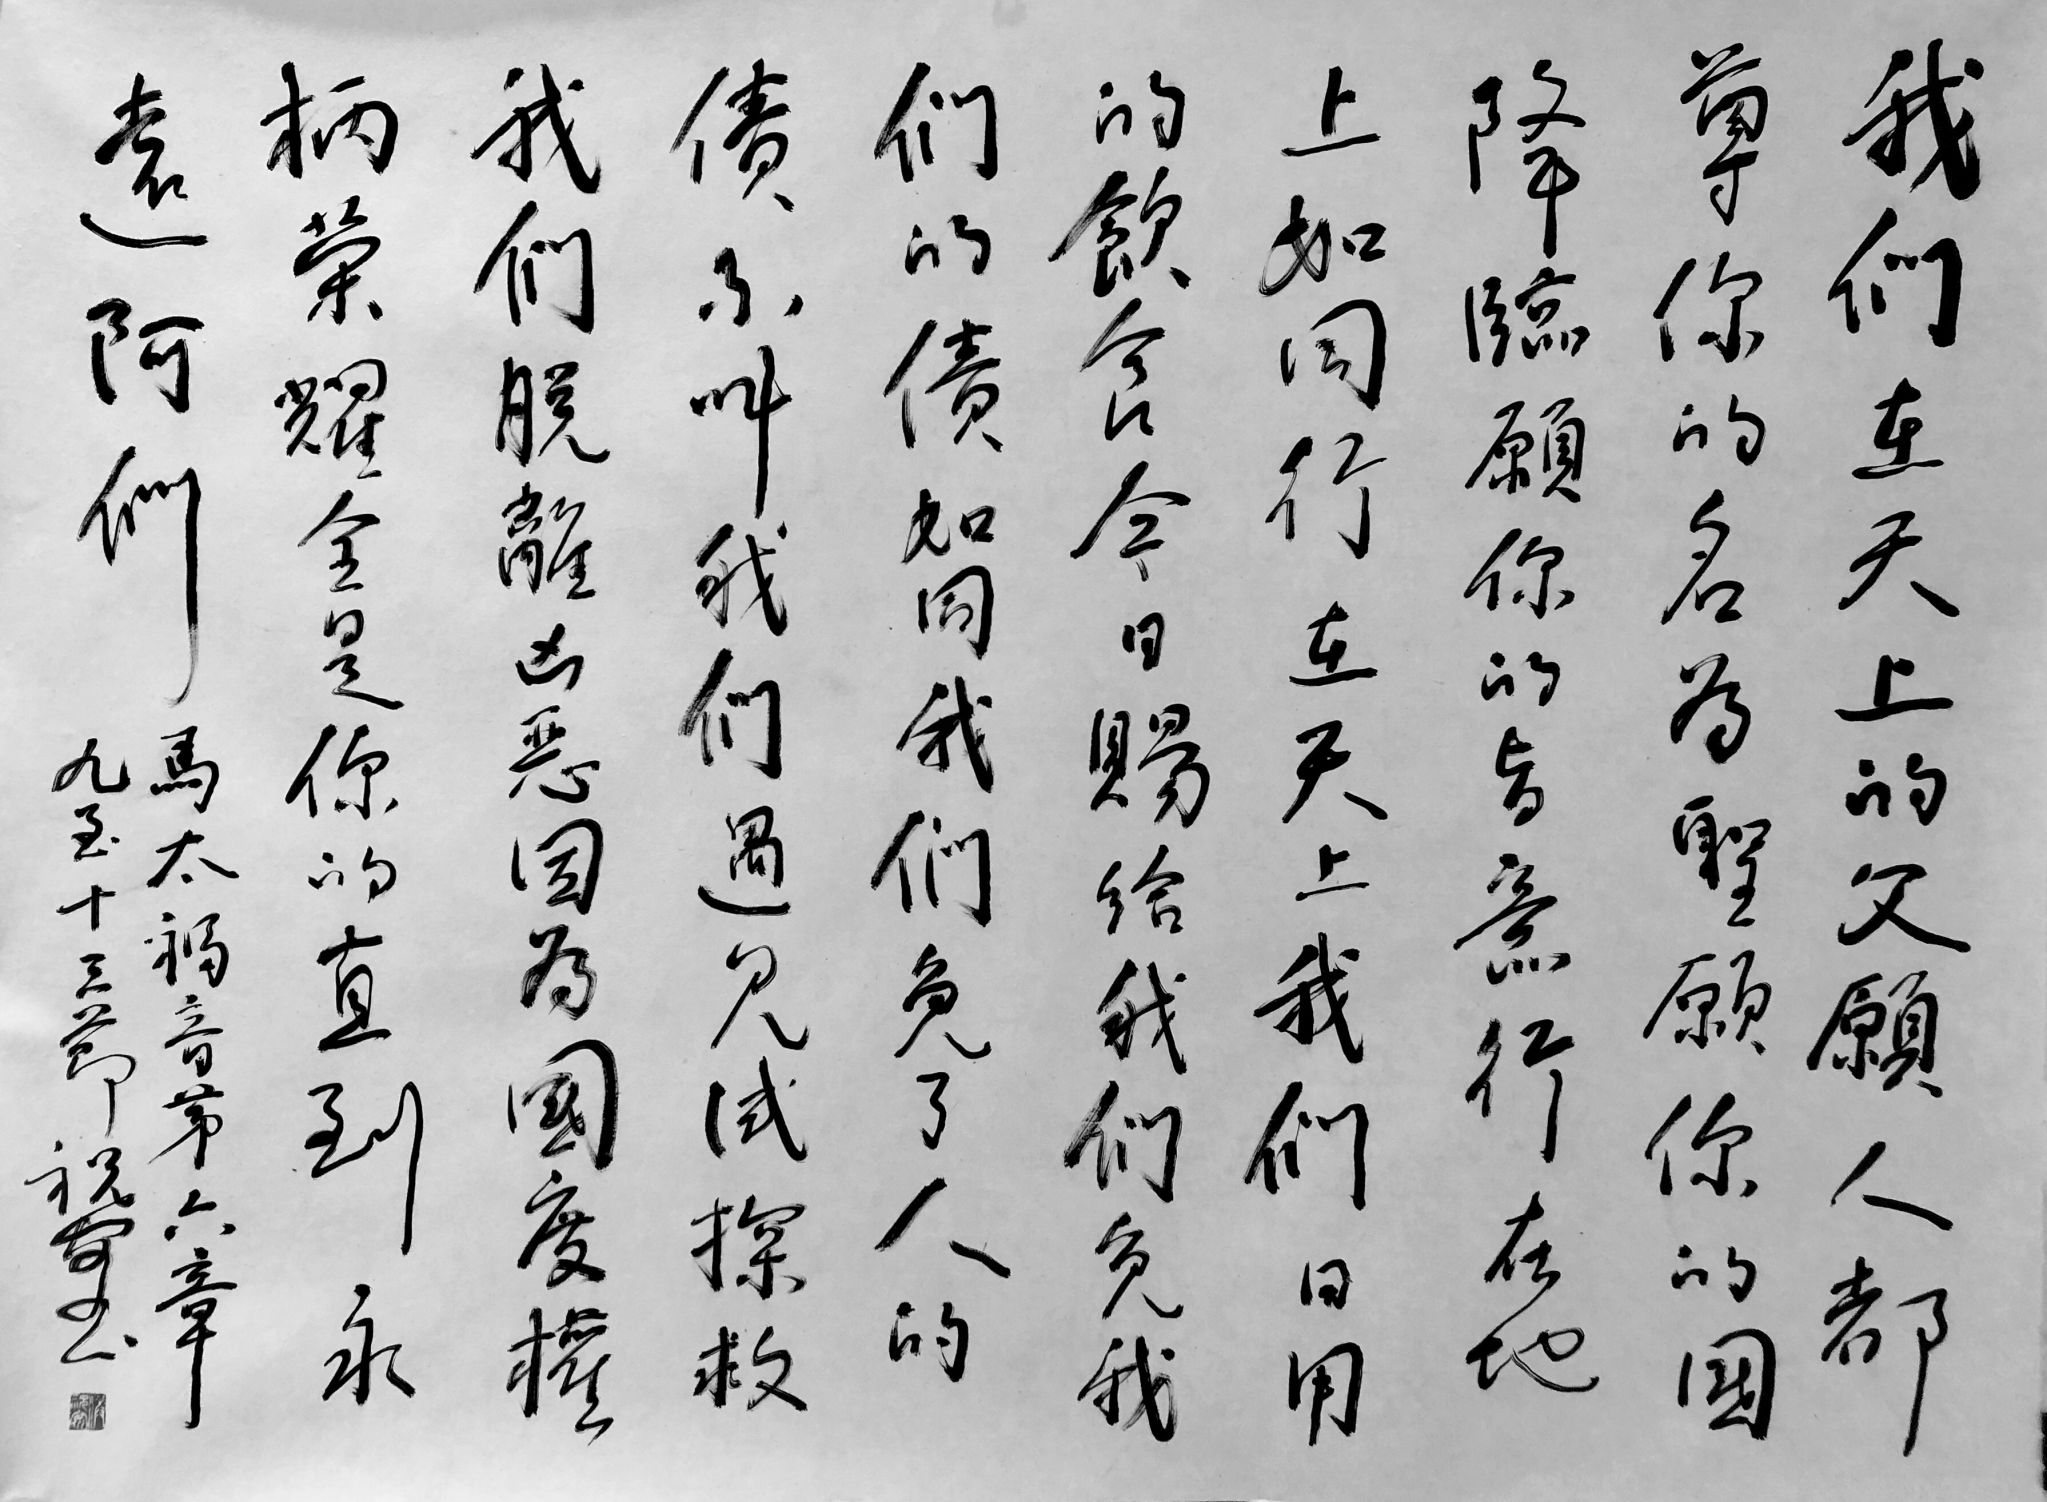 我們在天上的父願人都
尊你的名為聖願你的國
降臨願你的旨意行在地
上如同行在天上我們日用
的飲食今日賜給我們免我
們的債如同我們免了人的
債不叫我們遇見試探救
我們脫離凶惡因為國度權
柄榮耀全是你的直到永
遠阿們
馬太福音第六章
九至十三節 祝